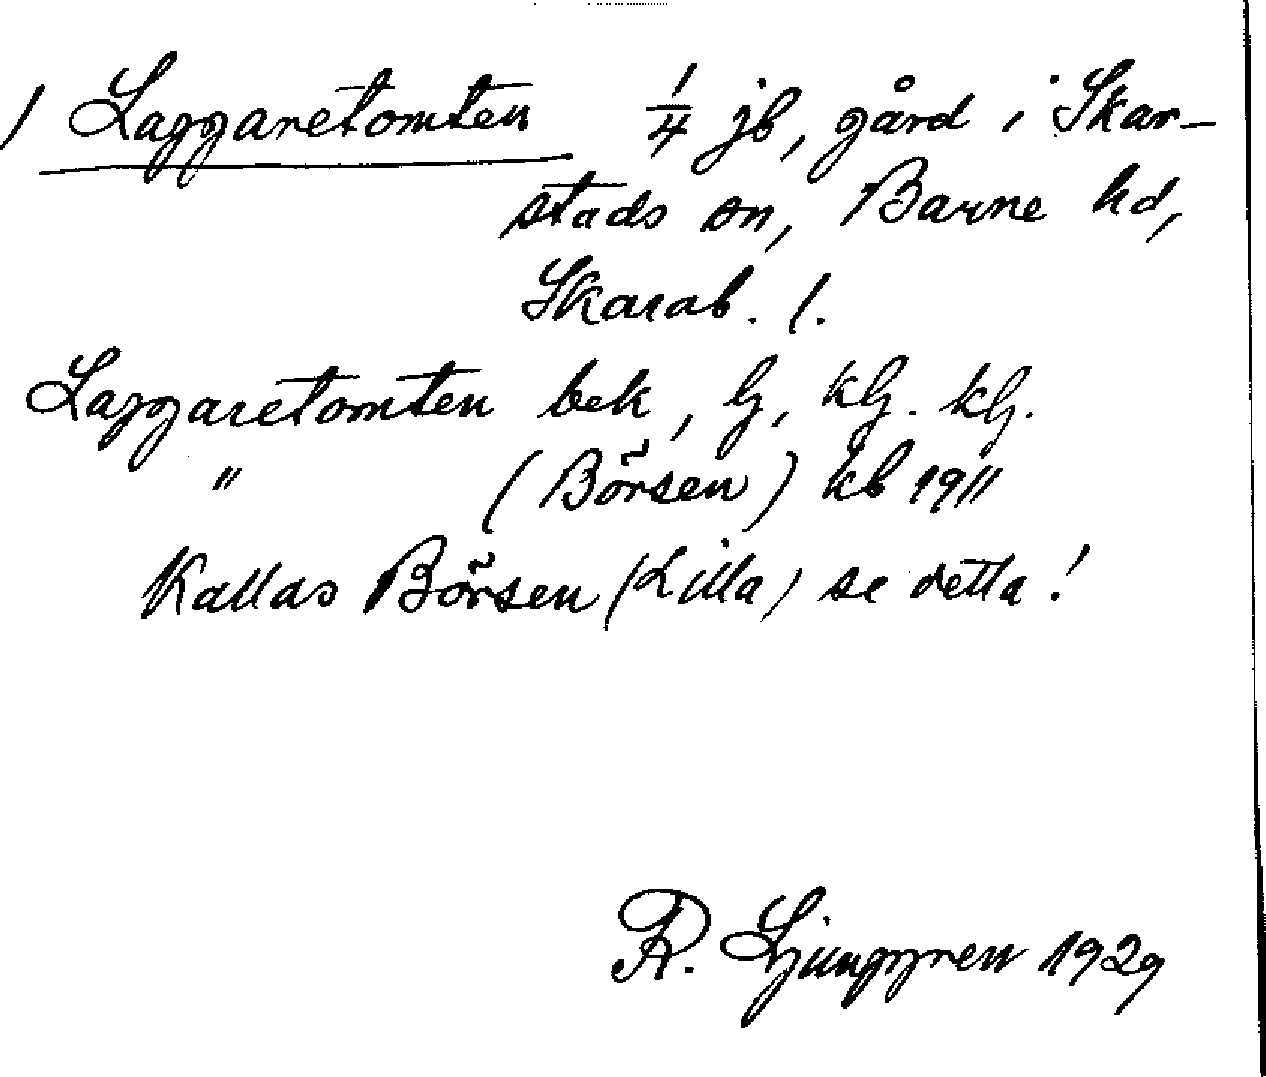 / Laggaretomten 1/4 jb, gård i Skar-
stads sn, Barne hd,
Skarab. l.
Laggaretomten bek, lj, klj. klj.
" (Börsen) kb 1911
Kallas Börsen (Lilla) se detta!
R. Ljunggren 1929